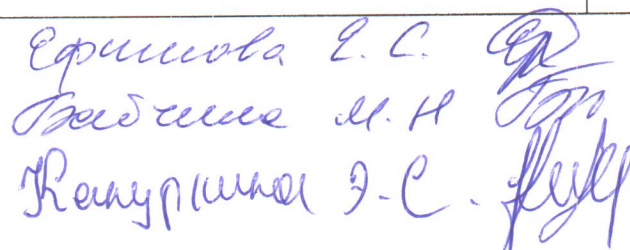 Ефимова Е. С.
Бабчина М. Н
Кануркина Э. С.